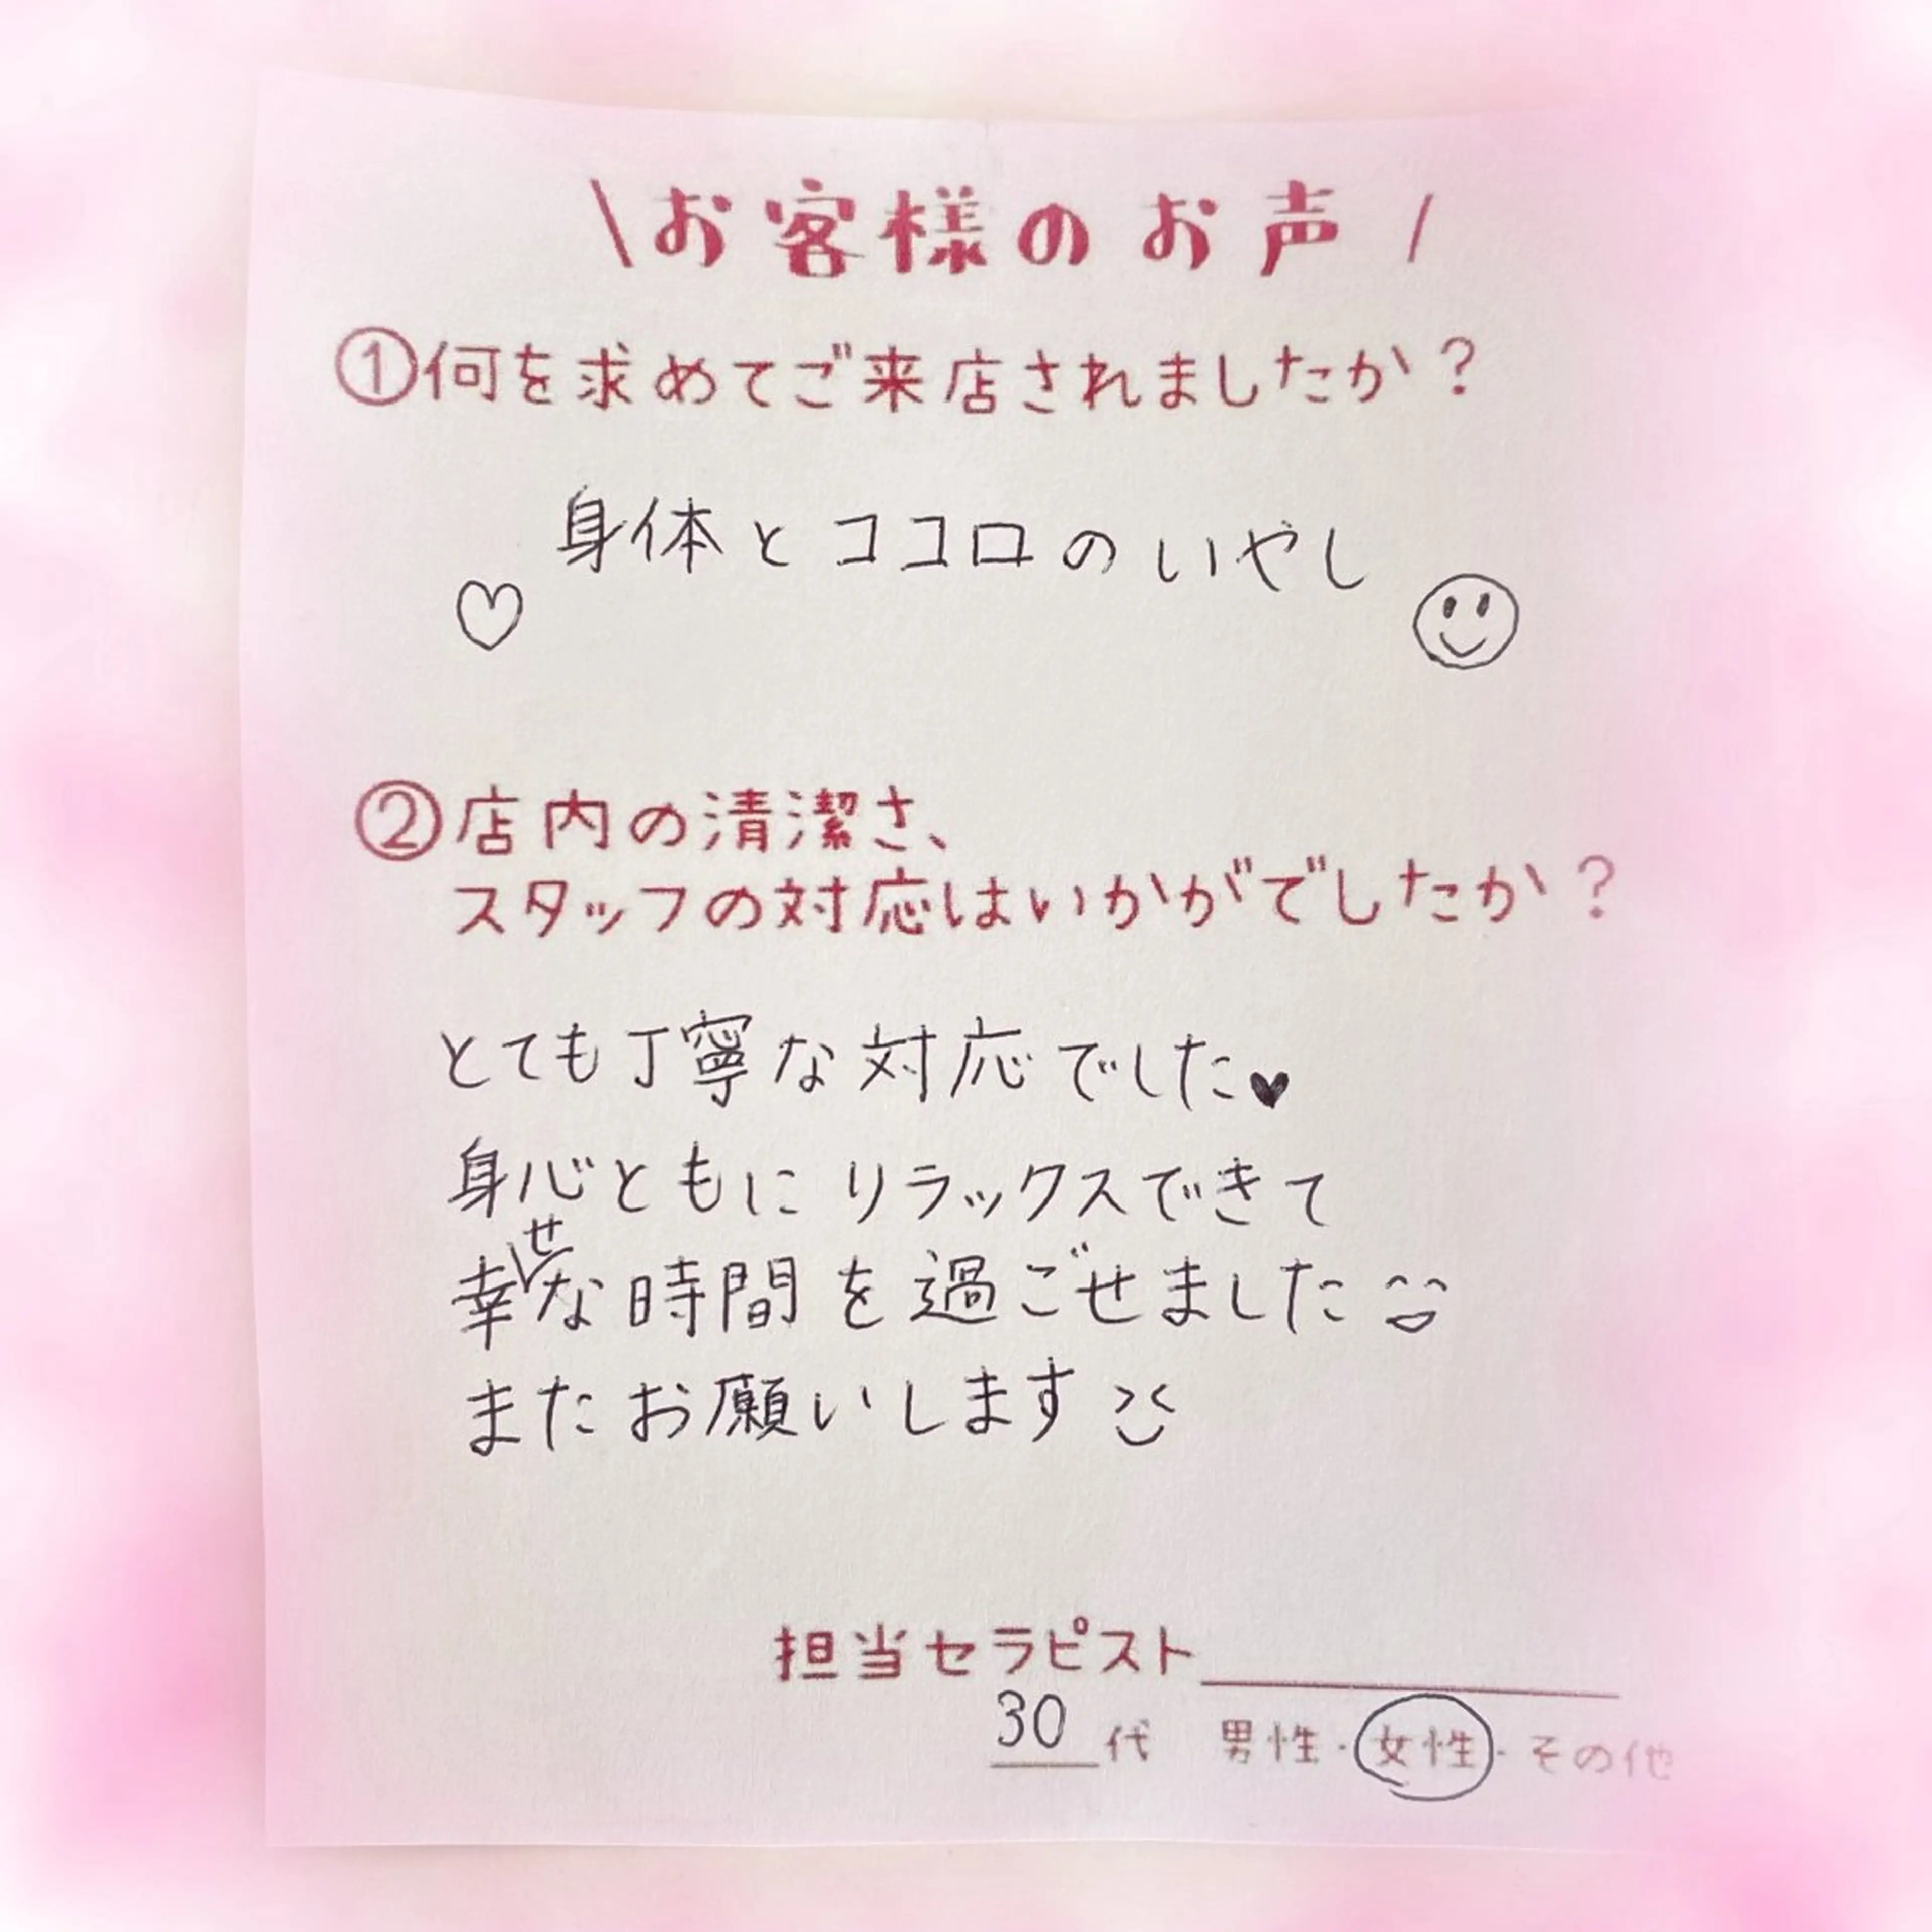 \お客様のお声/
①何を求めてご来店されましたか？
身体とココロのいやし
②店内の清潔さ、
スタッフの対応はいかがでしたか？
とても丁寧な対応でした♥
身心ともにリラックスできて
幸せな時間を過ごせました
またお願いします
担当セラピスト
30代 男性・女性・その他